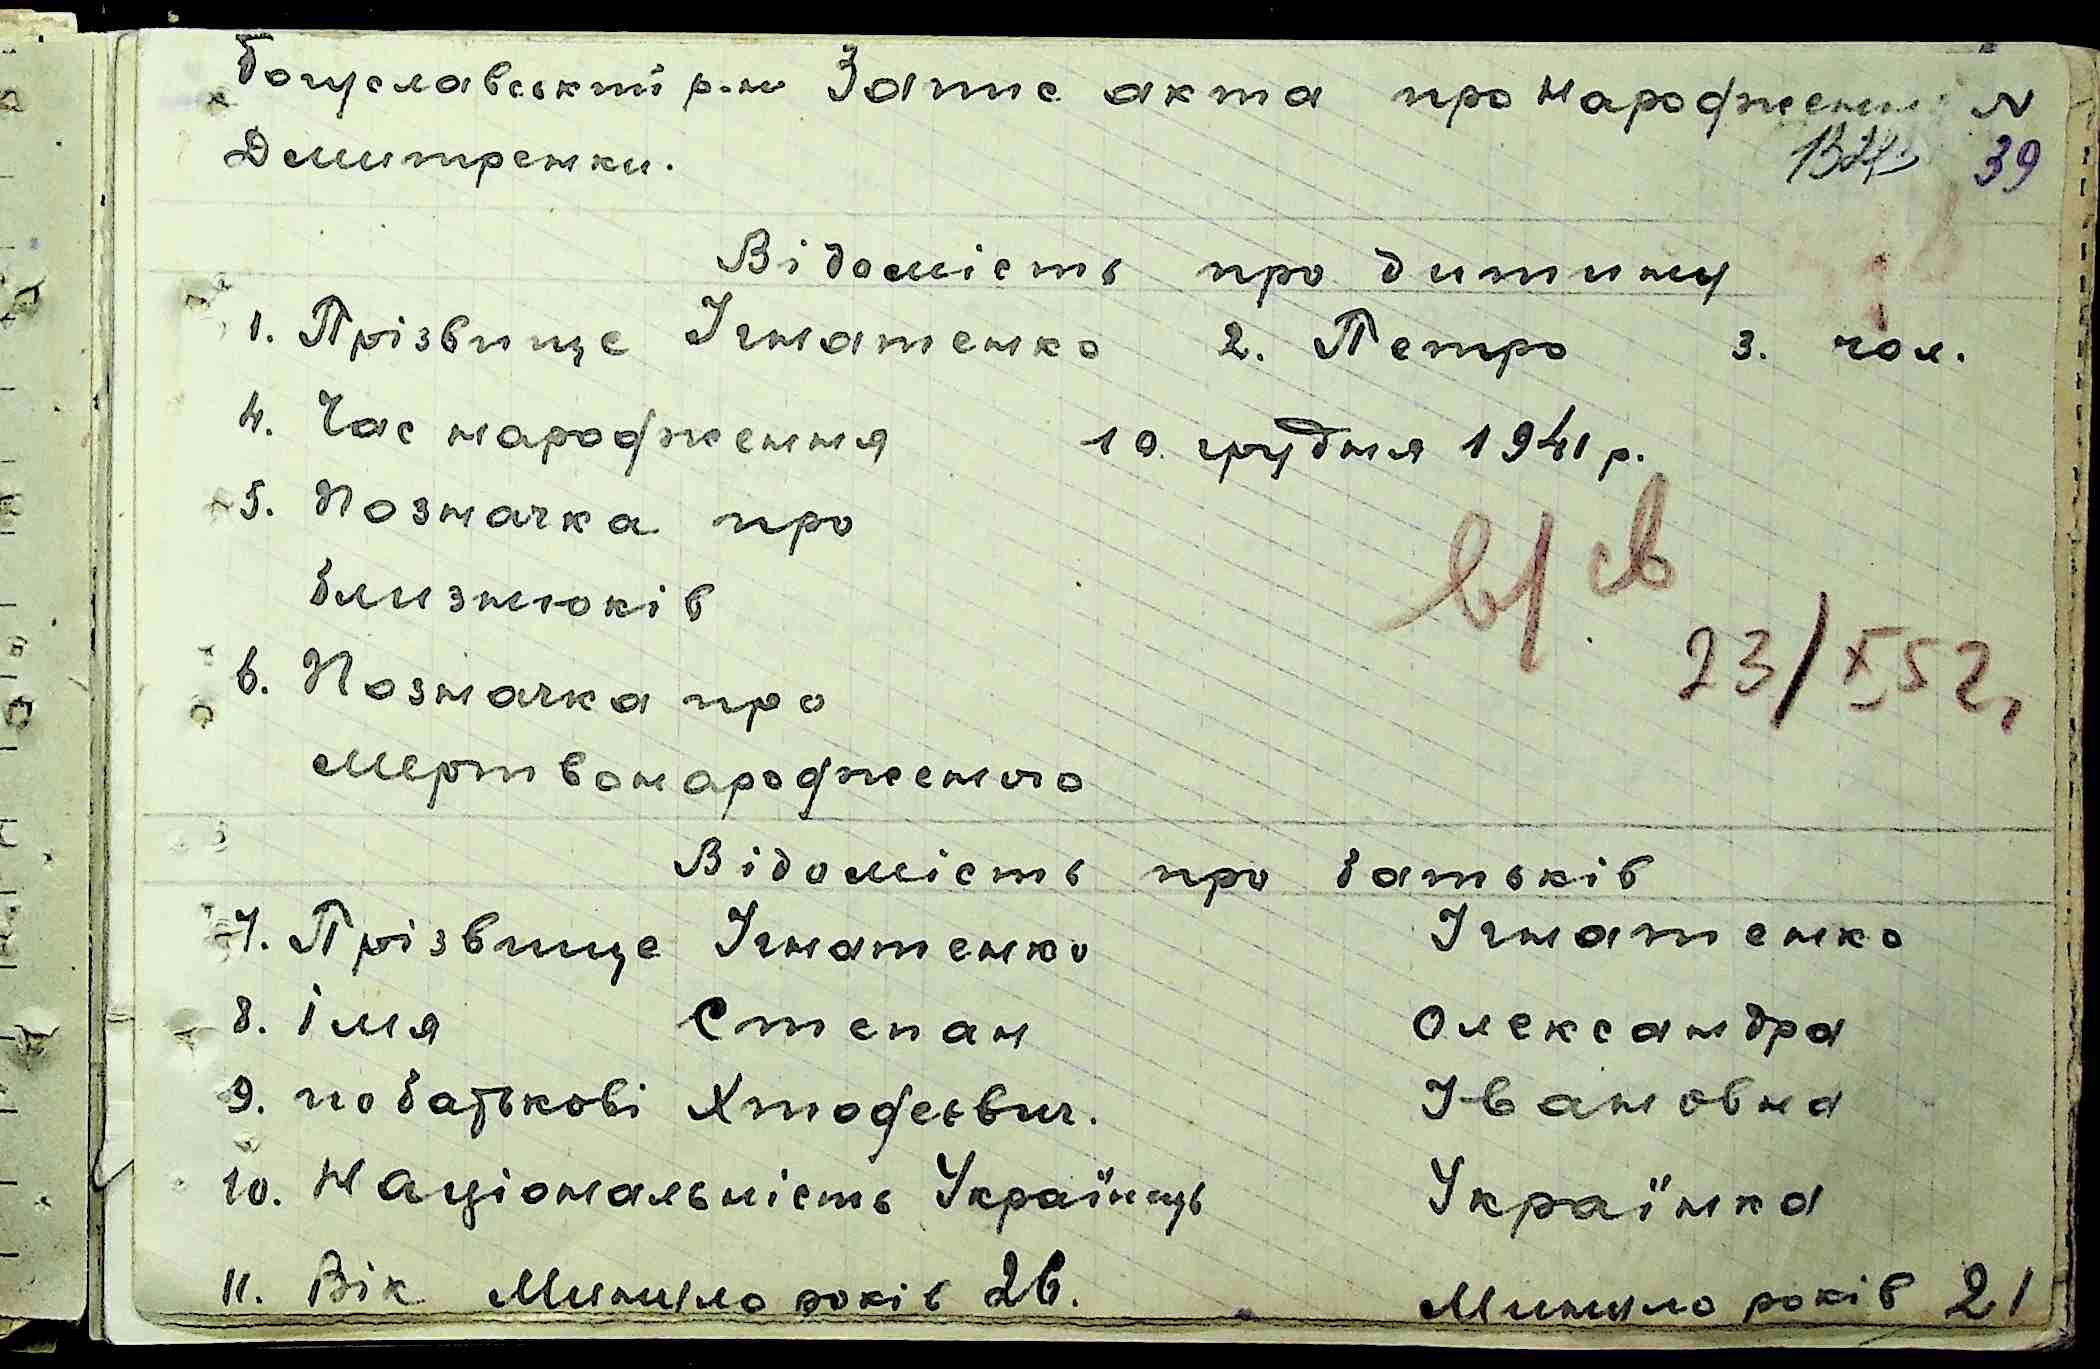 Богуславський р-н Запис акта про народження N
Дмитренки. 39
Відомість про дитину
1. Прізвище Ігнатенко 2. Петро 3. чол.
4. Час народження 10 грудня 1941 р.
5. Позначка про
близнюків
в/св
6. Позначка про
23/X 52 г.
мертвонародженого
Відомість про батьків
7. Прізвище Ігнатенко Ігнатенко
8. імя Степан Олександра
9. по батькові Хтодосвич. Івановна
10. Національність Українець Українка
11. Вік Минуло років 26. Минуло років 21